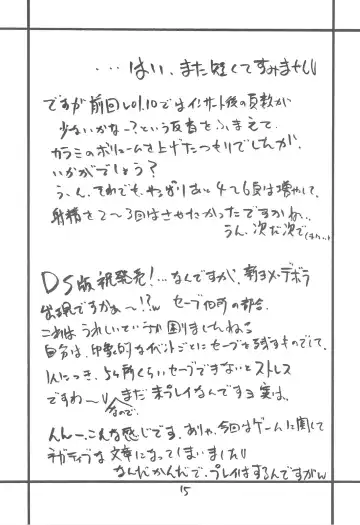 …はい、また短くてすみません
ですが前回vol.10ではインサート後の頁数が
少ないかなー?という反省をふまえて
カラミのボリュームを上げたつもりでしたが、
いかがでしょう?
う、ん、それでも、やっぱりあと4〜6頁は増やして、
射精を2〜3回はさせたかったですかね…
うん、次だ次で
DS版祝発売!…なんですが、新ヨメ・デボラ
出現ですかぁ〜!?w セーブ個所の都合、
これはうれしいというか困りましたね。
自分は、印象的なイベントごとにセーブを残すものでして、
1人につき、5ヶ所くらいセーブできないとストレス
ですわ〜 まだ未プレイなんですョ実は、
なので、
んんー、こんな感じです。ありゃ、今回はゲームに関して
ネガティブな文章になってしまいました
なんだかんだで、プレイはするんですがw
15